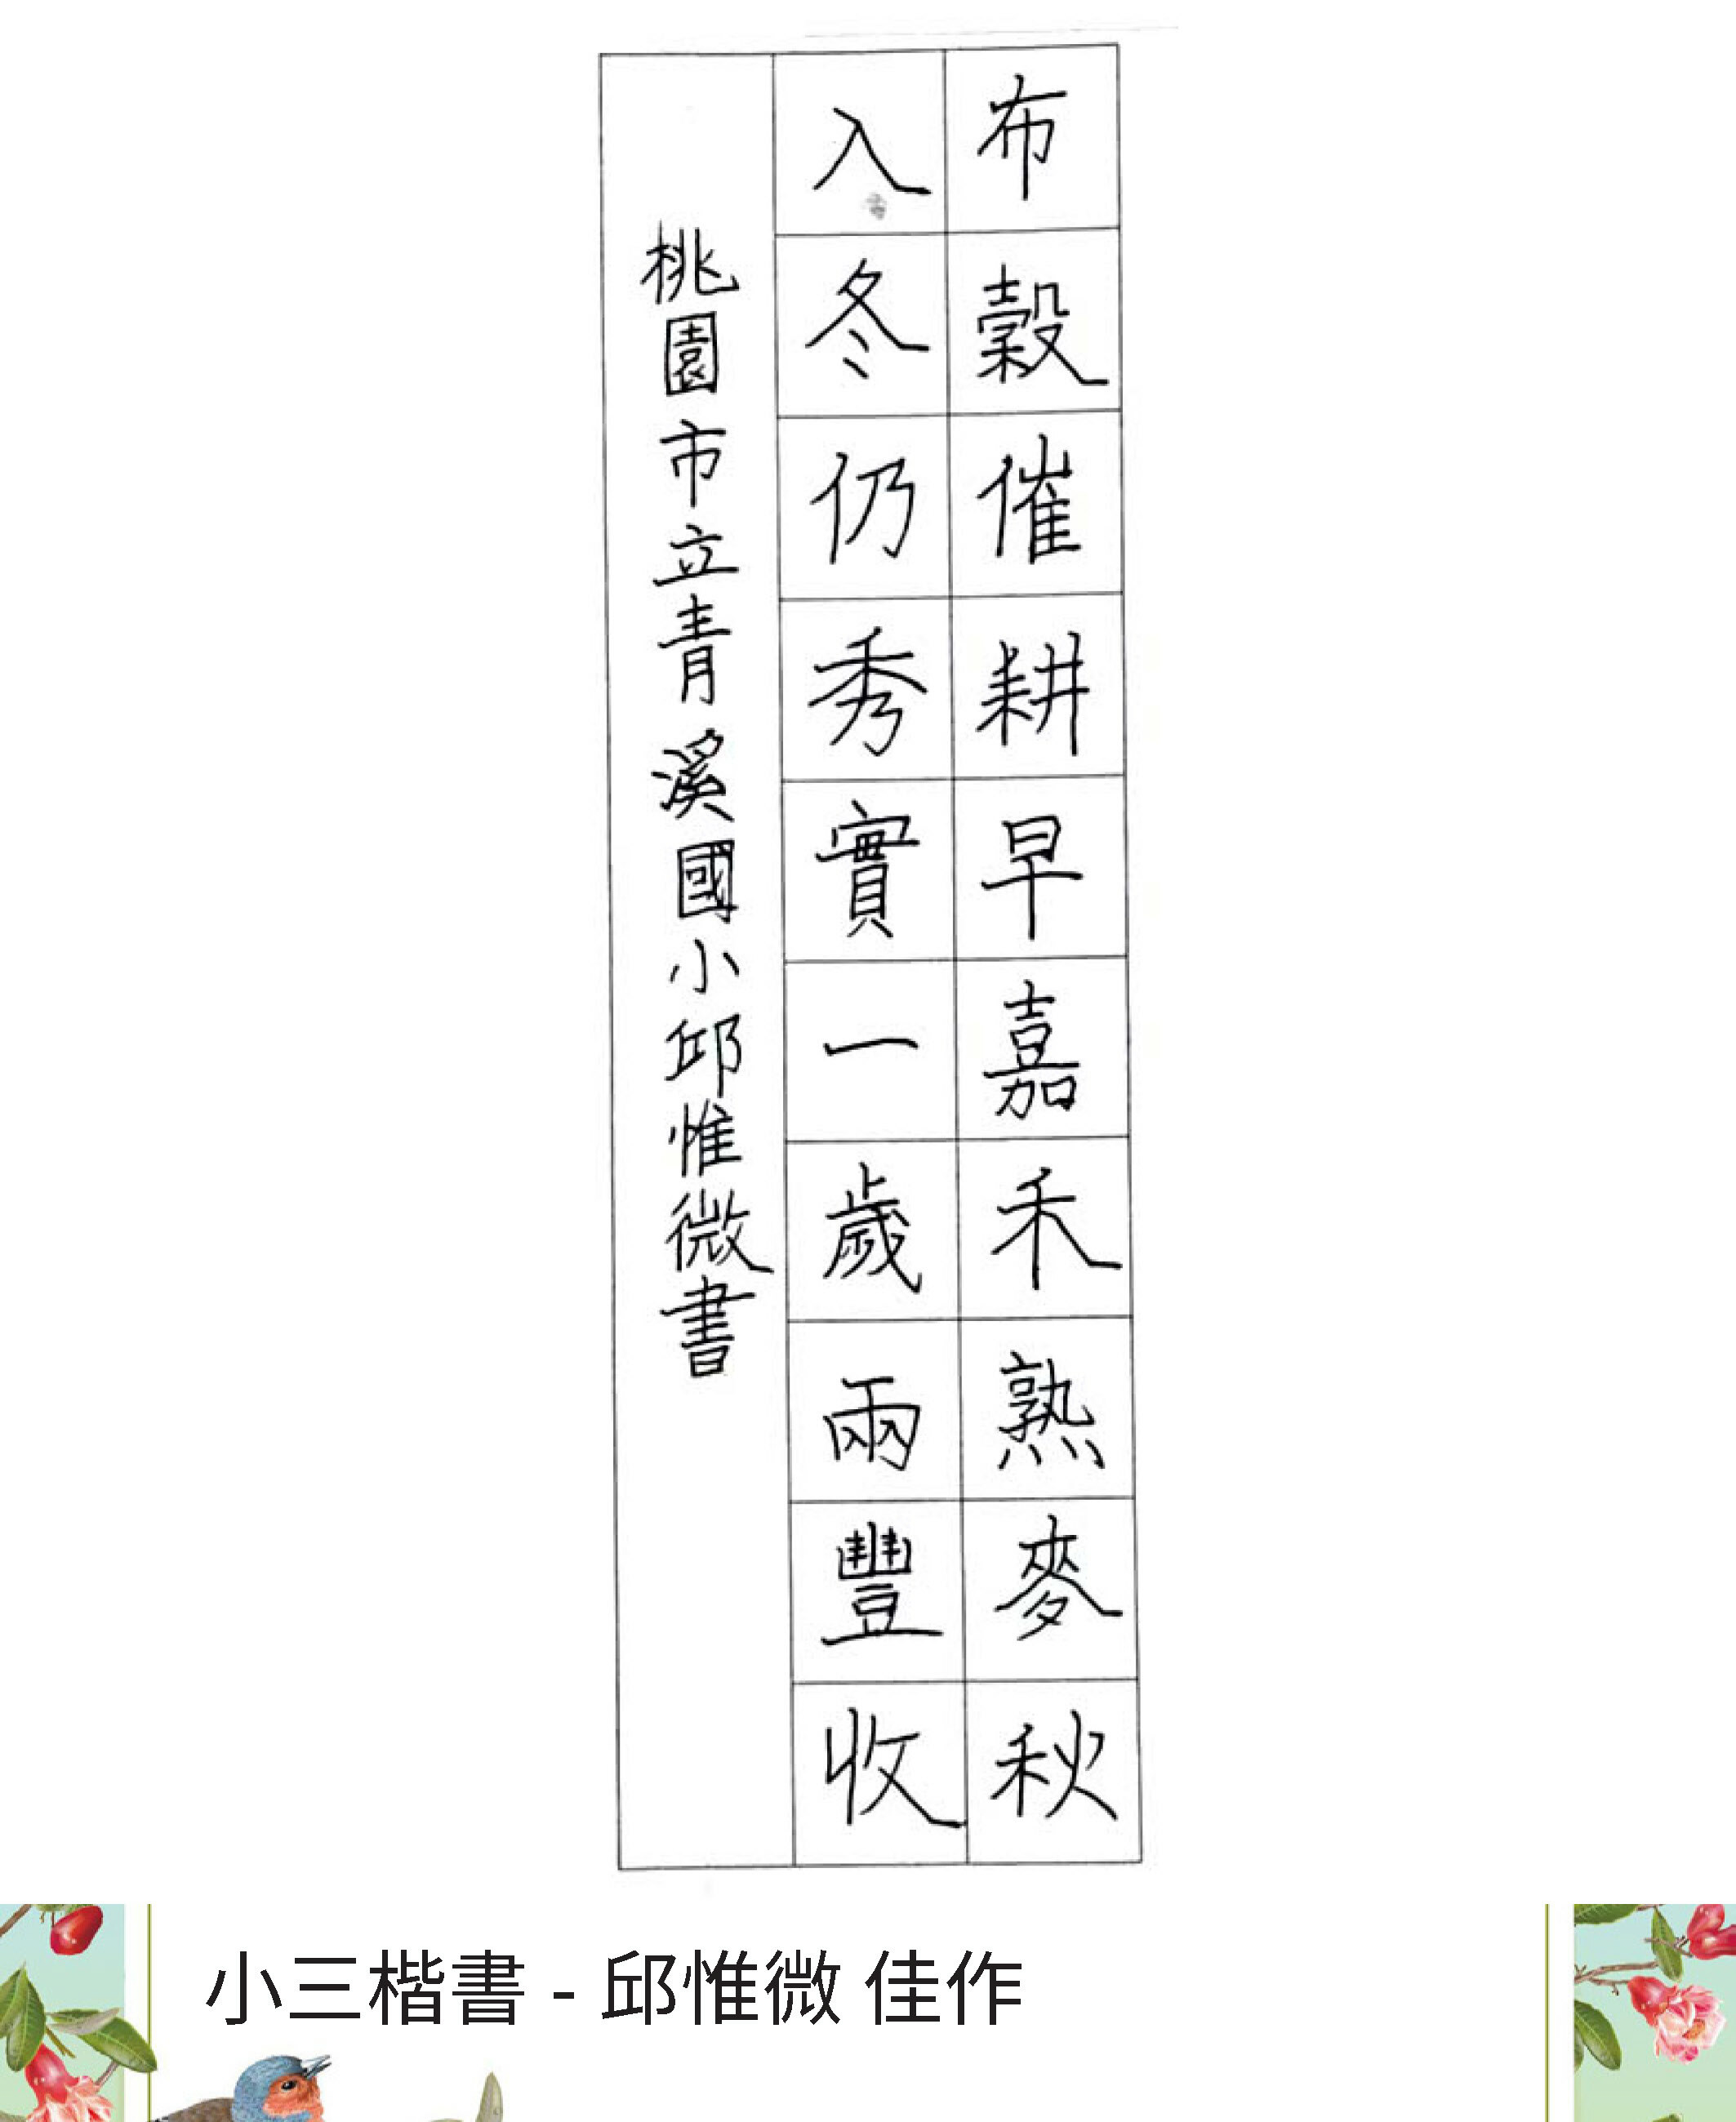 布穀催耕早嘉禾熟麥秋
入冬仍秀實一歲兩豐收
桃園市立青溪國小邱惟微書
小三楷書 - 邱惟微 佳作